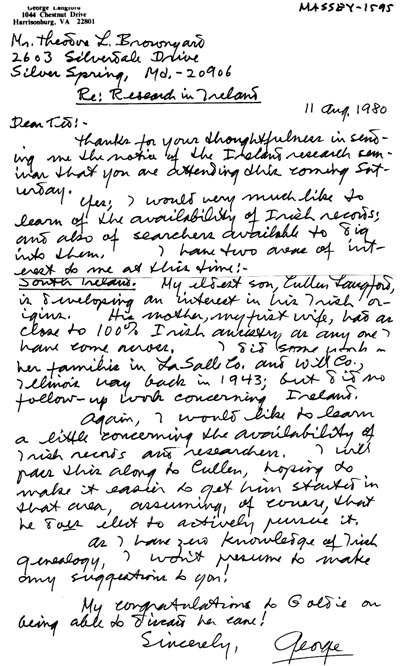 George Langford
1044 Chestnut Drive
Harrisonburg, VA 22801
MASSEY-1595
Mr. Theodore L. Brownyard
2603 Silverdale Drive
Silver Spring, Md. - 20906
Re: Research in Ireland
11 Aug, 1980
Dear Ted:-
Thanks for your thoughtfulness in send-
ing me the notice of the Ireland research sem-
inar that you are attending this coming Sat-
urday.
Yes, I would very much like to
learn of the availability of Irish records;
and also of searchers available to dig
into them. I have two areas of int-
erest to me at this time:-
South Ireland. My eldest son, Cullen Langford,
is developing an interest in his Irish or-
igins. His mother, my first wife, had as
close to 100% Irish ancestry as any one I
have come across. I did some work on
her families in LaSalle Co. and Will Co.,
Illinois way back in 1943; but did no
follow-up work concerning Ireland.
Again, I would like to learn
a little concerning the availability of
Irish records and researchers. I will
pass this along to Cullen, hoping to
make it easier to get him started in
that area, assuming, of course, that
he does elect to actively pursue it.
As I have zero knowledge of Irish
genealogy, I won't presume to make
any suggestions to you!
My congratulations to Goldie on
being able to discard her cane!
Sincerely, George